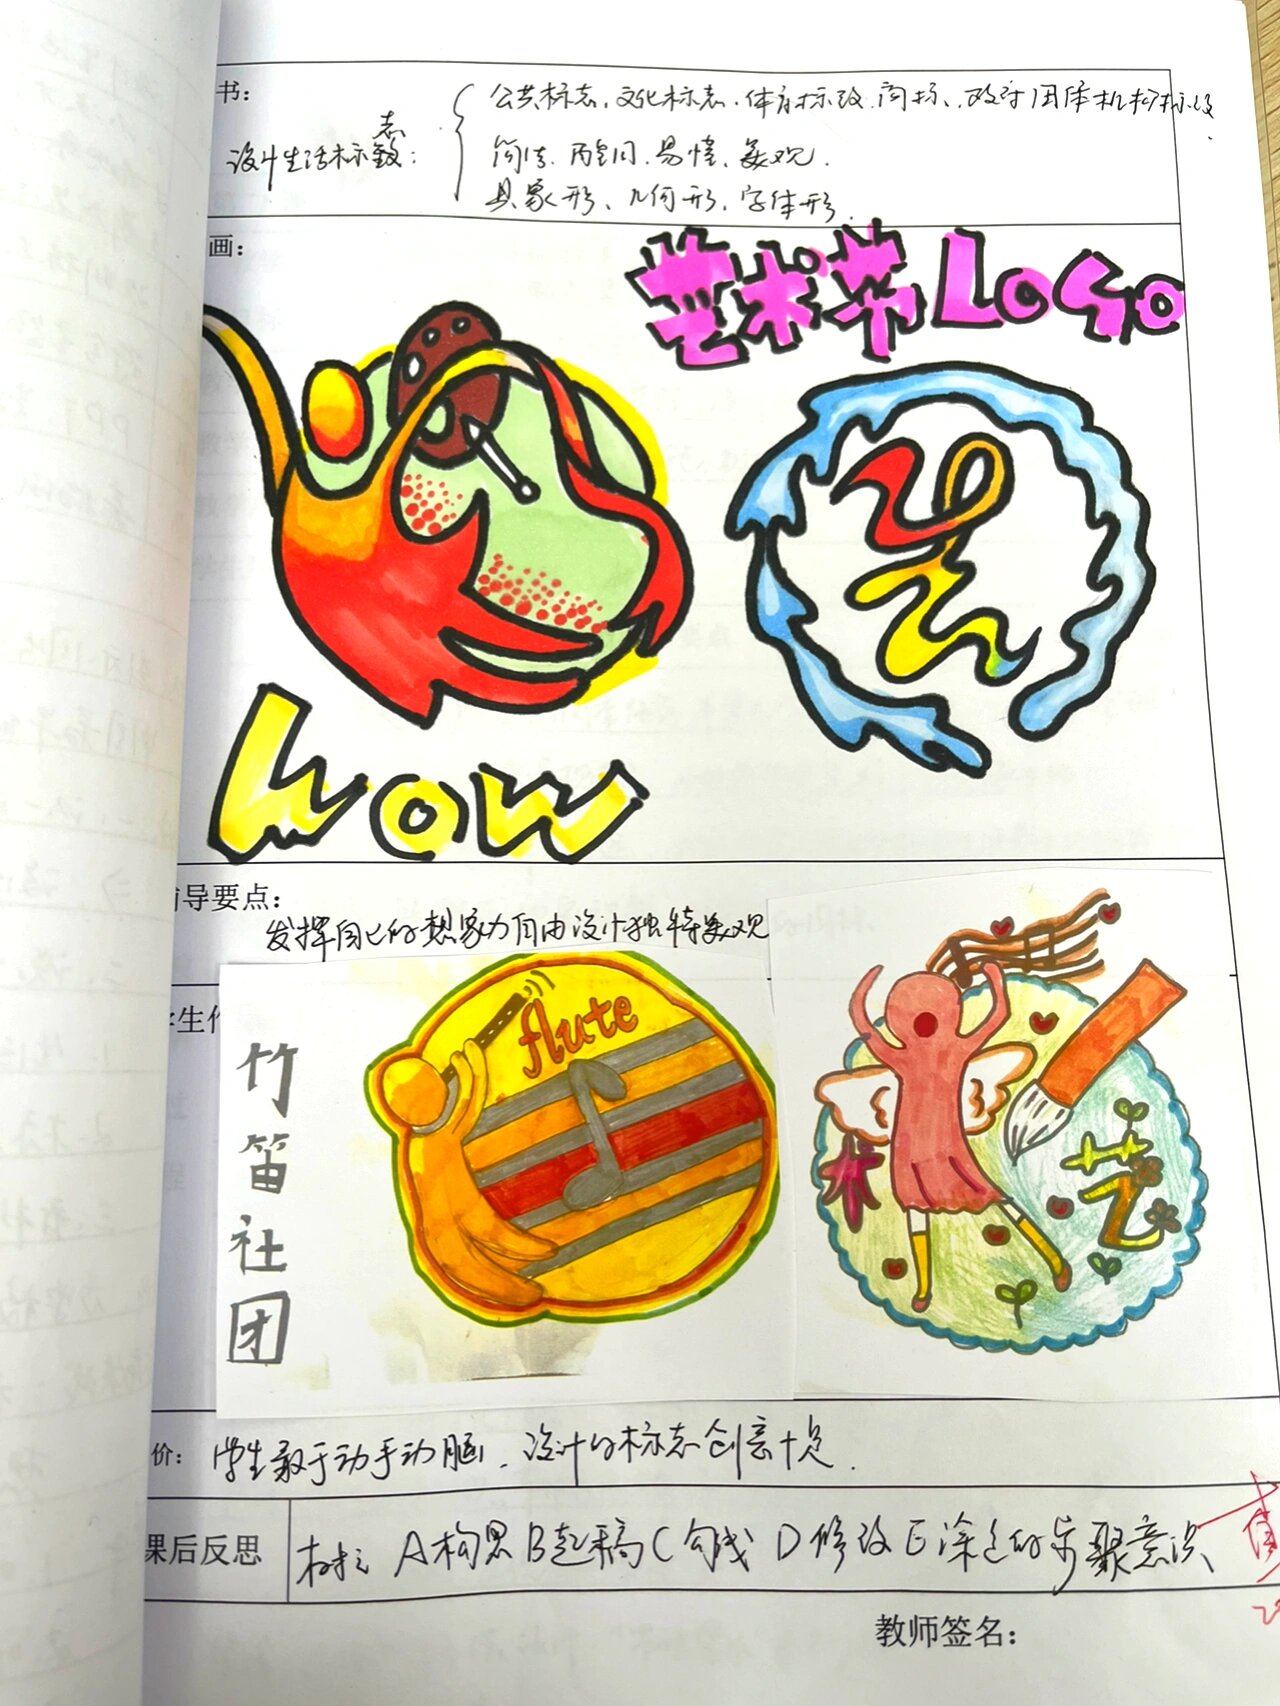 书:
公共标志、文化标志、体育标致、商标、政府团体机构标致
志
设计生活标致:
简洁、醒目、易懂、美观.
具象形、几何形、字体形.
画:
艺术节LOGO
艺
WOW
导要点:
发挥自己的想象力自由设计独特美观
学生作
flute
竹
笛
社
团
术
艺
价: 学生敢于动手动脑、设计的标志创意十足.
课后反思
树立 A构思 B起稿 C勾线 D修改 E涂色的步骤意识
教师签名: